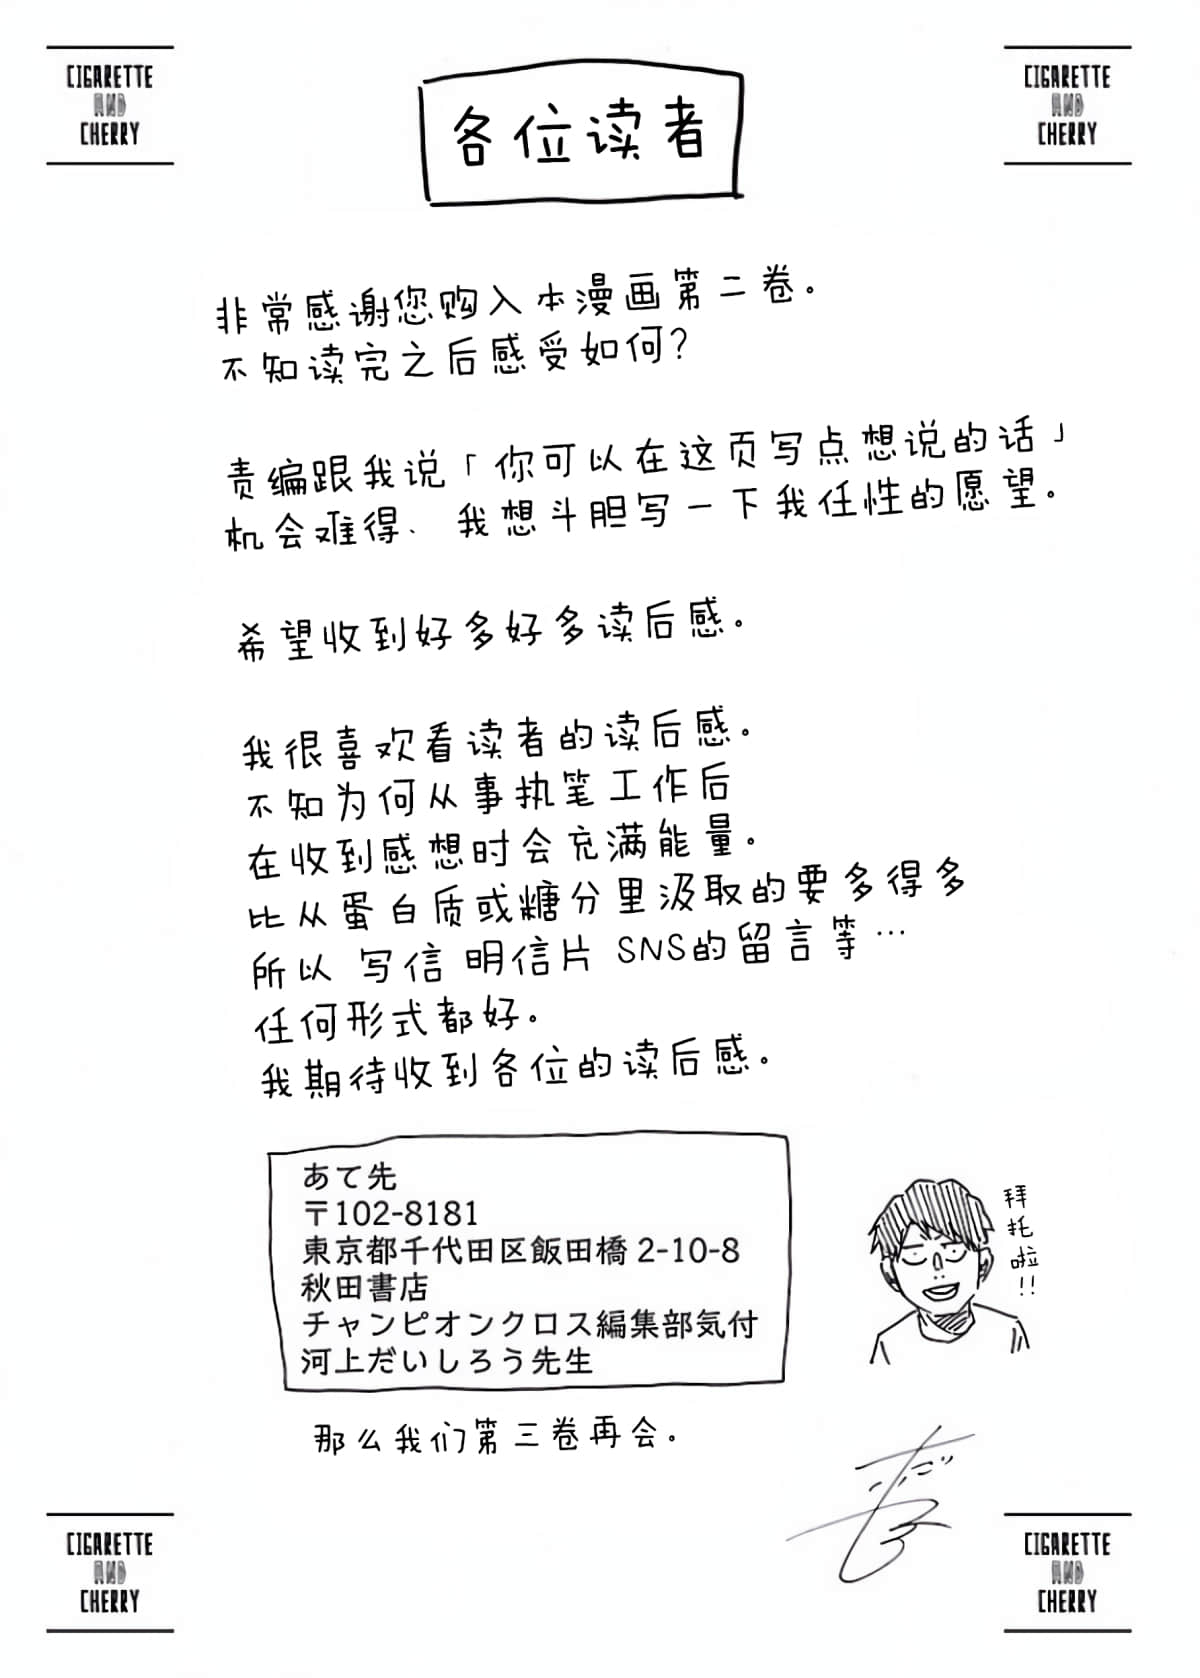 CIGARETTE
AND
CHERRY
CIGARETTE
AND
CHERRY
各位读者
非常感谢您购入本漫画第二卷。
不知读完之后感受如何?
责编跟我说「你可以在这页写点想说的话」
机会难得、我想斗胆写一下我任性的愿望。
希望收到好多好多读后感。
我很喜欢看读者的读后感。
不知为何从事执笔工作后
在收到感想时会充满能量。
比从蛋白质或糖分里汲取的要多得多
所以 写信 明信片 SNS的留言等…
任何形式都好。
我期待收到各位的读后感。
あて先
〒102-8181
東京都千代田区飯田橋 2-10-8
秋田書店
チャンピオンクロス編集部気付
河上だいしろう先生
拜托啦!!
那么我们第三卷再会。
CIGARETTE
AND
CHERRY
CIGARETTE
AND
CHERRY